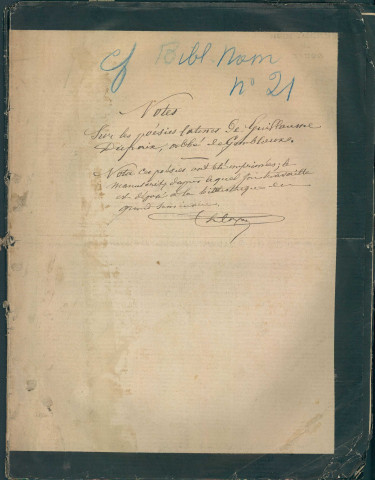 cf Bibl. Nam
n° 21
Notes
Sur les poésies latines de Guillaume
Dufrain, abbé de Gembloux.
Notes. Ces poésies ont été imprimées; le
manuscrit d'après lequel j'ai travaillé
est déposé à la bibliothèque du
grand séminaire.